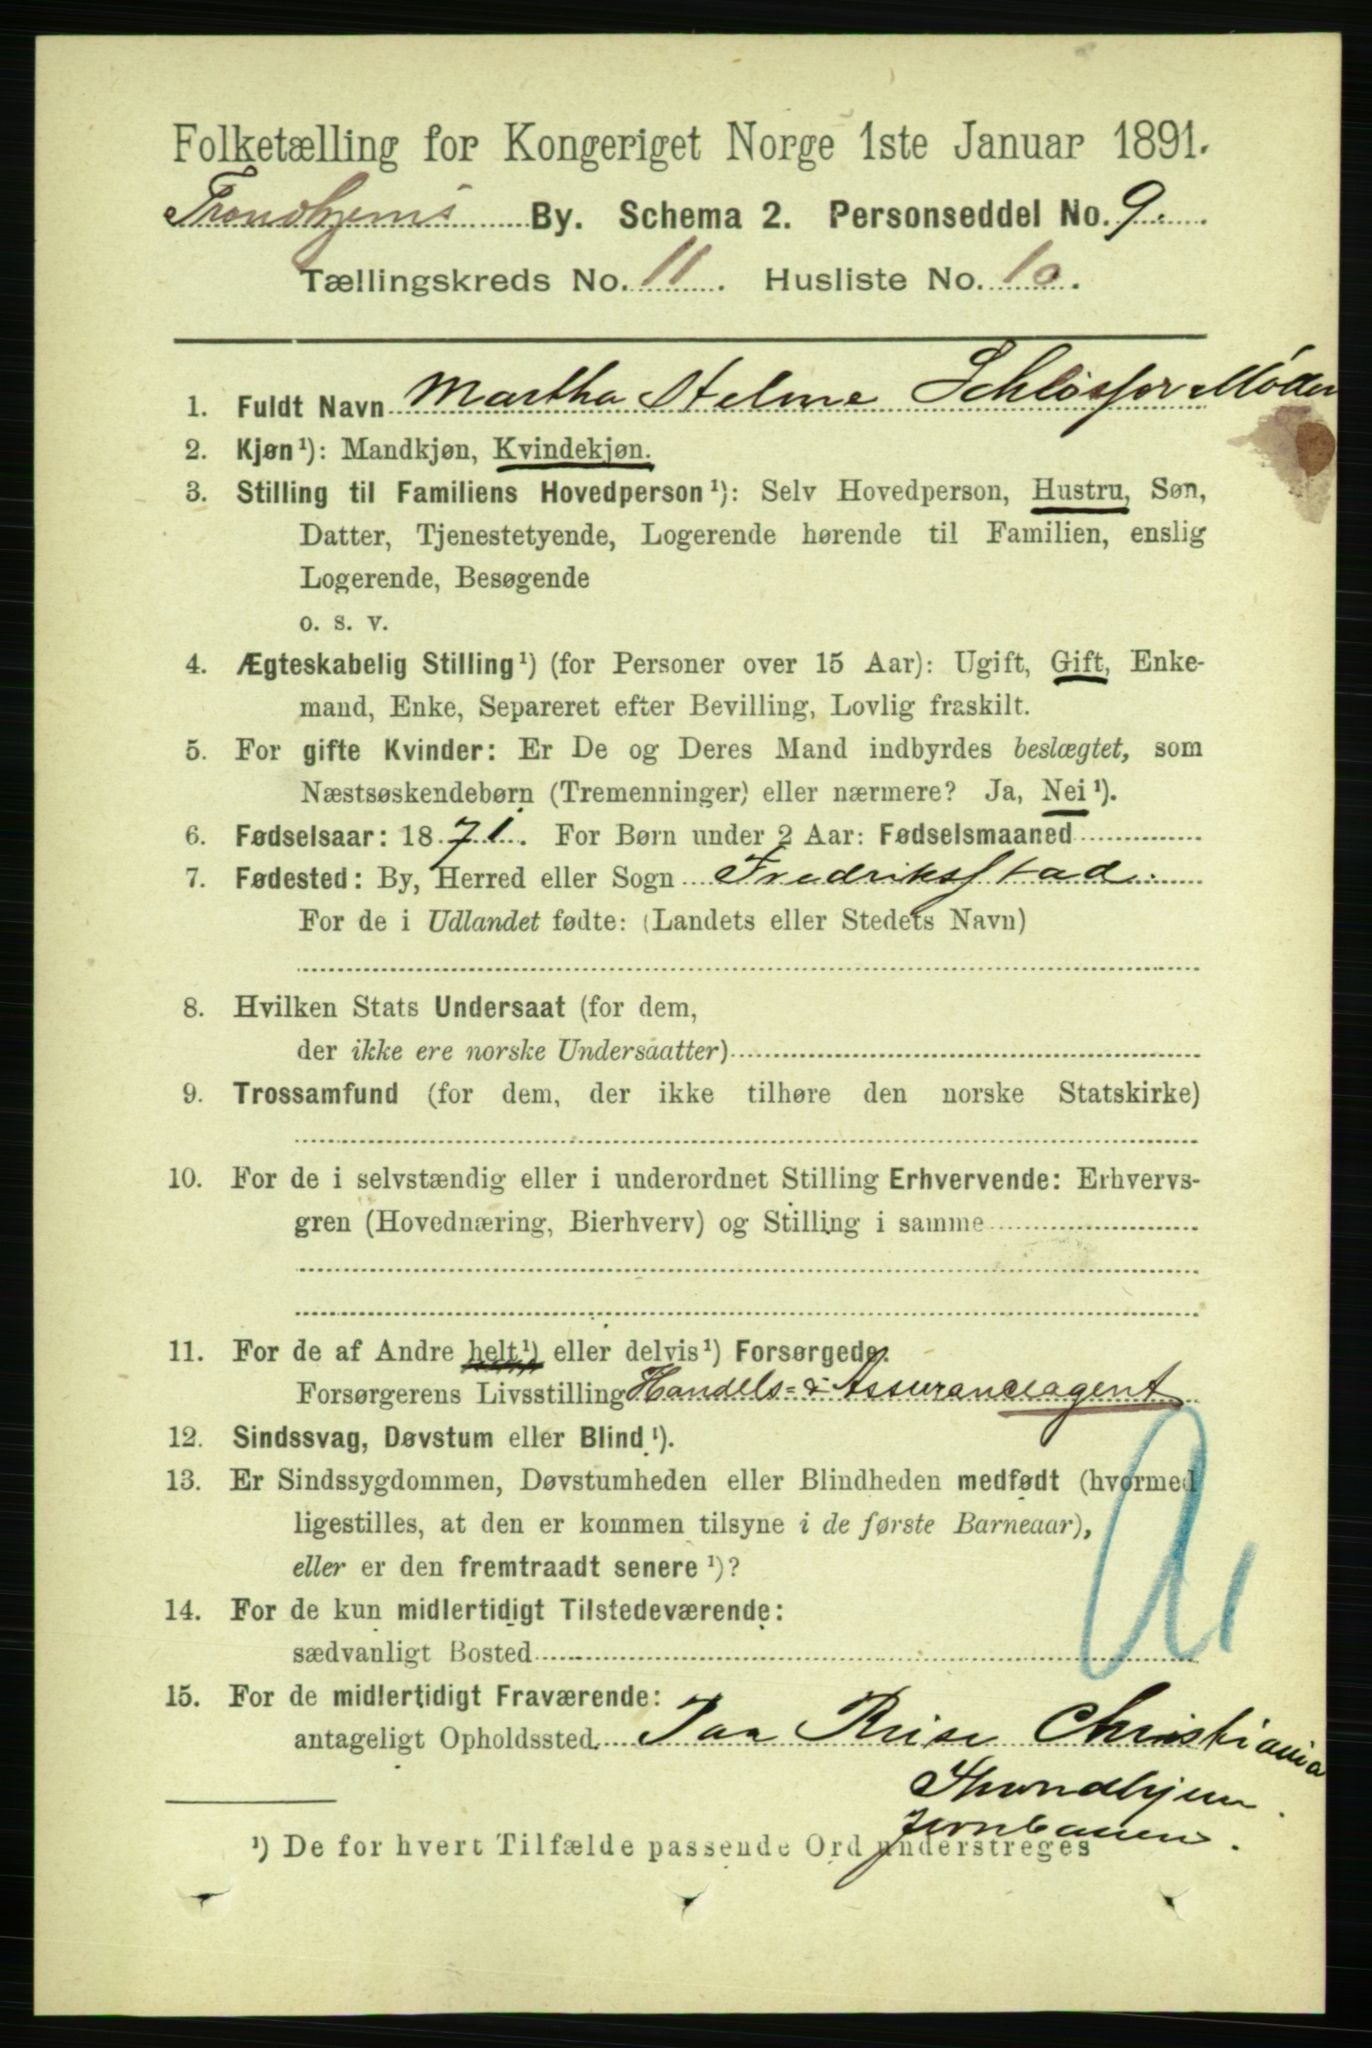 Folketælling for Kongeriget Norge 1ste Januar 1891.
Trondhjems By. Schema 2. Personseddel No. 9.
Tællingskreds No. 11. Husliste No. 10.
1. Fuldt Navn Martha Helme Schløsser Møller
2. Kjøn¹): Mandkjøn, Kvindekjøn.
3. Stilling til Familiens Hovedperson¹): Selv Hovedperson, Hustru, Søn,
Datter, Tjenestetyende, Logerende hørende til Familien, enslig
Logerende, Besøgende
o. s. v.
4. Ægteskabelig Stilling¹) (for Personer over 15 Aar): Ugift, Gift, Enke-
mand, Enke, Separeret efter Bevilling, Lovlig fraskilt.
5. For gifte Kvinder: Er De og Deres Mand indbyrdes beslægtet, som
Næstsøskendebørn (Tremenninger) eller nærmere? Ja, Nei¹).
6. Fødselsaar: 1871. For Børn under 2 Aar: Fødselsmaaned
7. Fødested: By, Herred eller Sogn Fredriksstad.
For de i Udlandet fødte: (Landets eller Stedets Navn)
8. Hvilken Stats Undersaat (for dem,
der ikke ere norske Undersaatter)
9. Trossamfund (for dem, der ikke tilhøre den norske Statskirke)
10. For de i selvstændig eller i underordnet Stilling Erhvervende: Erhvervs-
gren (Hovednæring, Bierhverv) og Stilling i samme
11. For de af Andre helt¹) eller delvis¹) Forsørgede.
Forsørgerens Livsstilling Handels- & Assuranceagent
12. Sindssvag, Døvstum eller Blind¹).
13. Er Sindssygdommen, Døvstumheden eller Blindheden medfødt (hvormed
ligestilles, at den er kommen tilsyne i de første Barneaar),
eller er den fremtraadt senere¹)?
14. For de kun midlertidigt Tilstedeværende:
sædvanligt Bosted
15. For de midlertidigt Fraværende:
antageligt Opholdssted. Paa Reise Christiania
Throndhjem
Jernbanen.
¹) De for hvert Tilfælde passende Ord understreges